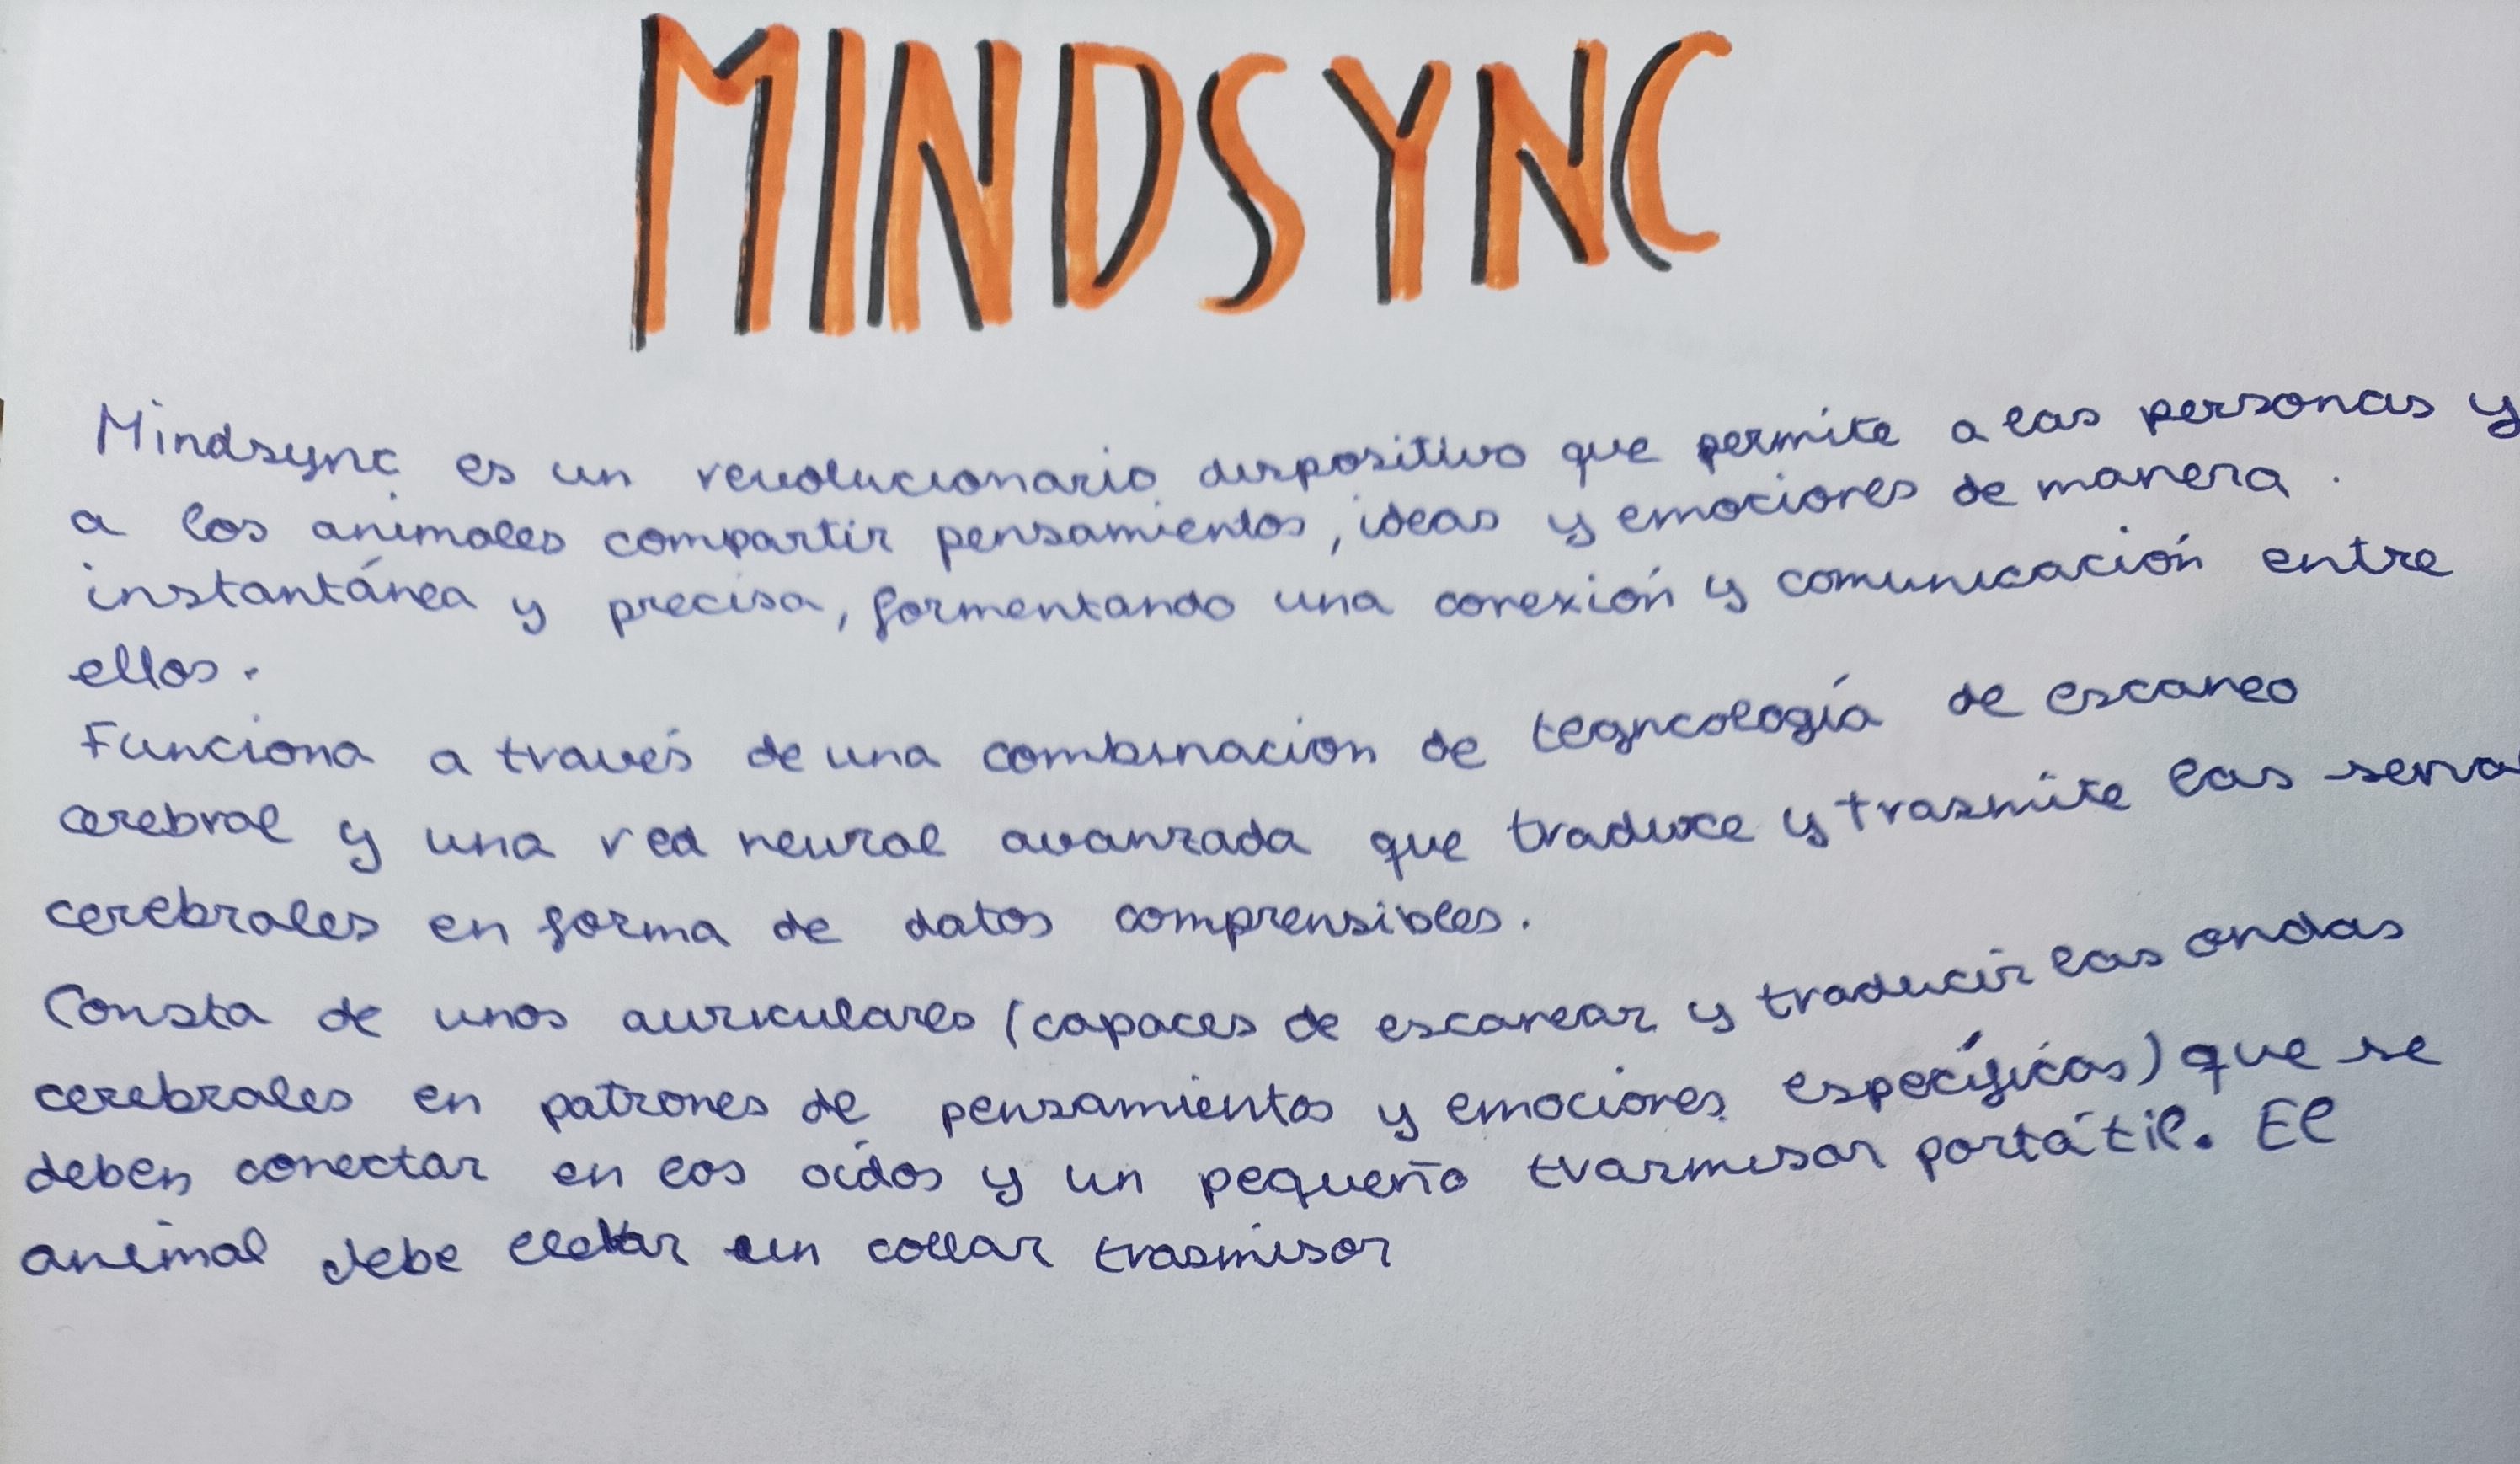 MINDSYNC
Mindsync es un revolucionario dispositivo que permite a las personas y
a los animales compartir pensamientos, ideas y emociones de manera
instantánea y precisa, formentando una conexión y comunicación entre
ellos.
Funciona a través de una combinacion de tegncología de escaneo
cerebral y una red neural avanzada que traduce y trasmite las
cerebrales en forma de datos comprensibles.
Consta de unos auriculares (capaces de escanear y traducir las ondas
cerebrales en patrones de pensamientos y emociones específicas) que se
deben conectar en los oídos y un pequeño tranmisor portátil. El
animal debe un collar trasmisor